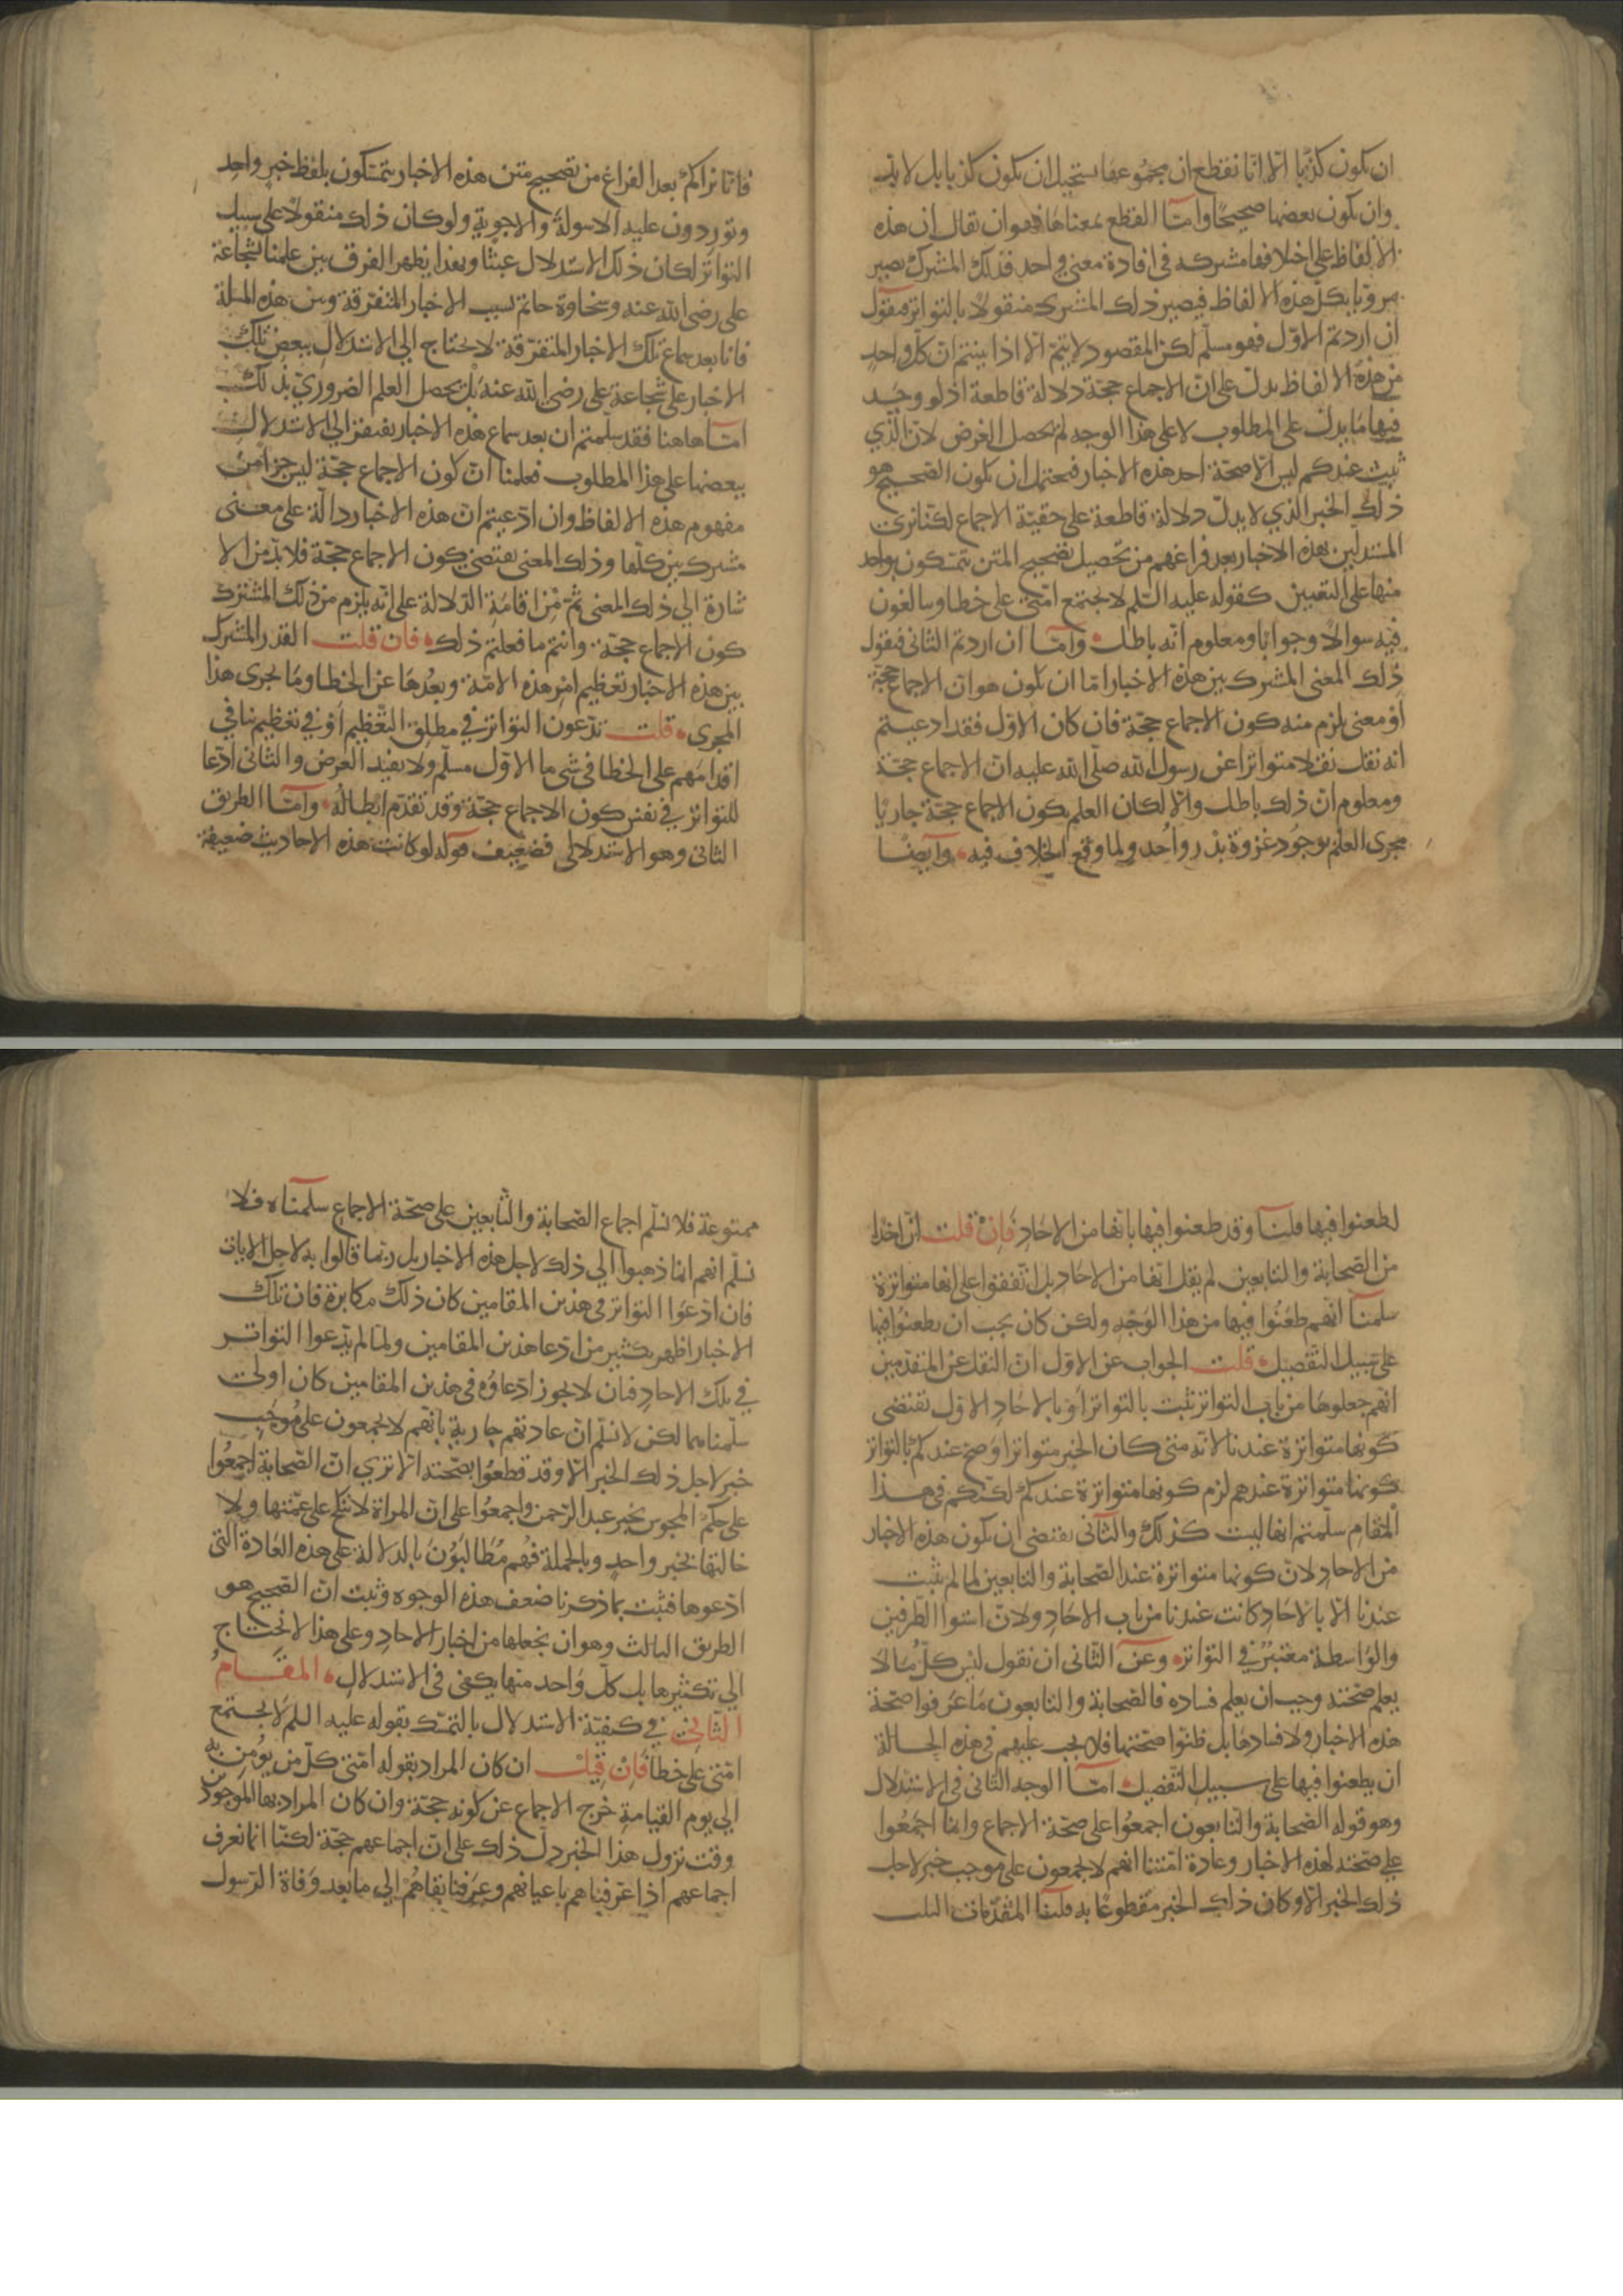 ان يكون كذبًا الا انا نقطع ان مجموعها يستحيل ان يكون كذبا بل لا بد
وان يكون بعضها صحيحًا وامّا القطع بمعناها فهو ان نقال ان هذه
الالفاظ على اختلافها مشتركة في افادة معنى واحد فذلك المشترك يصير
مرويّا بكل هذه الالفاظ فيصير ذلك المشترك منقولًا بالتواتر فيقول
ان اردتم الاوّل فهو مسلّم لكن المقصود لا يتمّ الّا اذا بيّنتم انّ كلّ واحدٍ
من هذه الالفاظ يدلّ على انّ الاجماع حجّة دلالة قاطعة اذ لو وجد
فيها ما يدل على المطلوب لا على هذا الوجه لم يحصل الغرض لانّ الّذي
ثبت عندكم ليس الّا صحّة احد هذه الاخبار فيحتمل ان يكون الصحيح هو
ذلك الخبر الذي لا يدلّ دلالة قاطعة على حقيّة الاجماع لكنّا نرى
المستدلّين بهذه الاخبار بعد فراغهم من تحصيل تصحيح المتن يتمسّكون بواحد
منها على التعيين كقوله عليه السّلم لا يجتمع امّتي على خطا ويبالغون
فيه سوالًا وجوابًا ومعلوم انّه باطل وامّا ان اردتم الثاني فيقول
ذلك المعنى المشترك بين هذه الاخبار امّا ان يكون هو انّ الاجماع حجّة
او معنى يلزم منه كون الاجماع حجّة فان كان الاوّل فقد ادعيتم
انه نقل نقلا متواترا عن رسول الله صلّى الله عليه انّ الاجماع حجّة
ومعلوم انّ ذلك باطل والّا لكان العلم بكون الاجماع حجّة جاريًا
مجرى العلم بوجود غزوة بدر واُحد ولما وقع الخلاف فيه وايضًا
فانّا نراكم بعد الفراغ من تصحيح متن هذه الاخبار يتمسّكون بلفظ خبر واحد
وتوردون عليه الاسولة والاجوبة ولو كان ذلك منقولًا على سبيل
التواتر لكان ذلك الاستدلال عبثًا وبهذا يظهر الفرق بين علمنا بشجاعة
على رضى الله عنه وسخاوة حاتم بسبب الاخبار المتفرّقة وبين هذه المسلة
فانا بعد سماع تلك الاخبار المتفرّقة لا نحتاج الي الاستدلال ببعض تلك
الاخبار على شجاعة على رضى الله عنه بل يحصل العلم الضروريّ بذلك
امّا هاهنا فقد سلّمتم ان بعد سماع هذه الاخبار يفتقر الي الاستدلال
ببعضها على هذا المطلوب فعلمنا انّ كون الاجماع حجّة ليس جزا من
مفهوم هذه الالفاظ وان ادّعيتم ان هذه الاخبار دالّة على معنى
مشترك بين كلّها وذلك المعنى يقتضى كون الاجماع حجّة فلا بدّ من الا
شارة الي ذلك المعنى ثمّ من اقامة الدلالة على انّه يلزم من ذلك المشترك
كون الاجماع حجّة وانتم ما فعلتم ذلك فان قلت القدر المشترك
بين هذه الاخبار تعظيم امر هذه الامّة وبُعدها عن الخطا وما يجرى هذا
المجرى قلت تدّعون التواتر في مطلق التّعظيم او في تعظيم ينافي
اقدامهم على الخطا في شى ما الاوّل مسلّم ولا يفيد الغرض والثاني ادّعا
للتواتر في نفس كون الاجماع حجّة وقد تقدّم ابطاله وامّا الطريق
الثاني وهو الاستدلالى فضعيف قوله لو كانت هذه الاحاديث ضعيفة
لطعنوا فيها قلنا وقد طعنوا فيها بانها من الاحاد فان قلت انّ احدًا
من الصّحابة والتابعين لم يقل انّها من الاحاد بل اتّفقوا على انها متواترة
سلمنا انّهم طعنوا فيها من هذا الوجه ولكن كان يجب ان يطعنوا فيها
على سبيل التفصيل قلت الجواب عن الاول انّ النقل عن المتقدّمين
انهم جعلوها من باب التواتر يثبت بالتواتر او بالاحاد الاوّل يقتضى
كونها متواترة عندنا لانّه متى كان الخبر متواترا وصح عندكم بالتواتر
كونها متواترة عندهم لزم كونها متواترة عندكم لكنكم في هذا
المقام سلمتم انها ليست كذلك والثاني يقتضى ان يكون هذه الاخبار
من الاحاد لانّ كونها متواترة عند الصّحابة والتابعين لما لم يثبت
عندنا الا بالاحاد كانت عندنا من باب الاحاد ولانّ استوا الطرفين
والواسطة معتبر في التواتر وعن الثاني ان نقول ليس كلّ ما لا
يعلم صحّته وجب ان يعلم فساده فالصّحابة والتابعون ما عرفوا صحّة
هذه الاخبار ولا فسادها بل ظنّوا صحّتها فلا يجب عليهم في هذه الحالة
ان يطعنوا فيها على سبيل التفصيل امّا الوجه الثّاني في الاستدلال
وهو قوله الصّحابة والتابعون اجمعوا على صحّة الاجماع وانما اجمعوا
على صحّته لهذه الاخبار وعادة امّتنا انهم لا يجمعون على موجب خبر لاجل
ذلك الخبر الّا وكان ذلك الخبر مقطوعًا به قلنا المقدّمات الثلث
ممنوعة فلا نسلّم اجماع الصّحابة والتّابعين على صحّة الاجماع سلّمناه فلا
نسلّم انهم انما ذهبوا الي ذلك لاجل هذه الاخبار بل ربّما قالوا به لاجل الايات
فان ادّعوا التواتر في هذين المقامين كان ذلك مكابرة فان تلك
الاخبار اظهر بكثير من ادّعا هذين المقامين ولمّا لم يدّعوا التواتر
في تلك الاحاد فبان لا يجوز ادّعاؤه في هذين المقامين كان اولى
سلّمناهما لكن لا نسلّم انّ عادتهم جارية بانّهم لا يجمعون على موجب
خبر لاجل ذلك الخبر الّا وقد قطعوا بصحّته الا ترى انّ الصّحابة اجمعوا
على حكم المجوس بخبر عبد الرّحمن واجمعوا على انّ المراة لا تنكح على عمّتها ولا
خالتها بخبر واحد وبالجملة فهم مطالبون بالدلالة على هذه العادة الّتي
ادّعوها فثبت بما ذكرنا ضعف هذه الوجوه وثبت انّ الصحيح هو
الطريق الثالث وهو ان نجعلها من اخبار الاحاد وعلى هذا لا نحتاج
الي تكثيرها بل كلّ واحد منها يكفى في الاستدلال المقام
الثاني في كيفيّة الاستدلال بالتمسّك بقوله عليه السلم لا يجتمع
امّتي على خطا فان قيل ان كان المراد بقوله امّتي كلّ من يؤمن به
الي يوم القيامة خرج الاجماع عن كونه حجّة وان كان المراد بها الموجودين
وقت نزول هذا الخبر دلّ ذلك على انّ اجماعهم حجّة لكنّا انما نعرف
اجماعهم اذا عرفناهم باعيانهم وعرفنا بقاهم الي ما بعد وفاة الرّسول